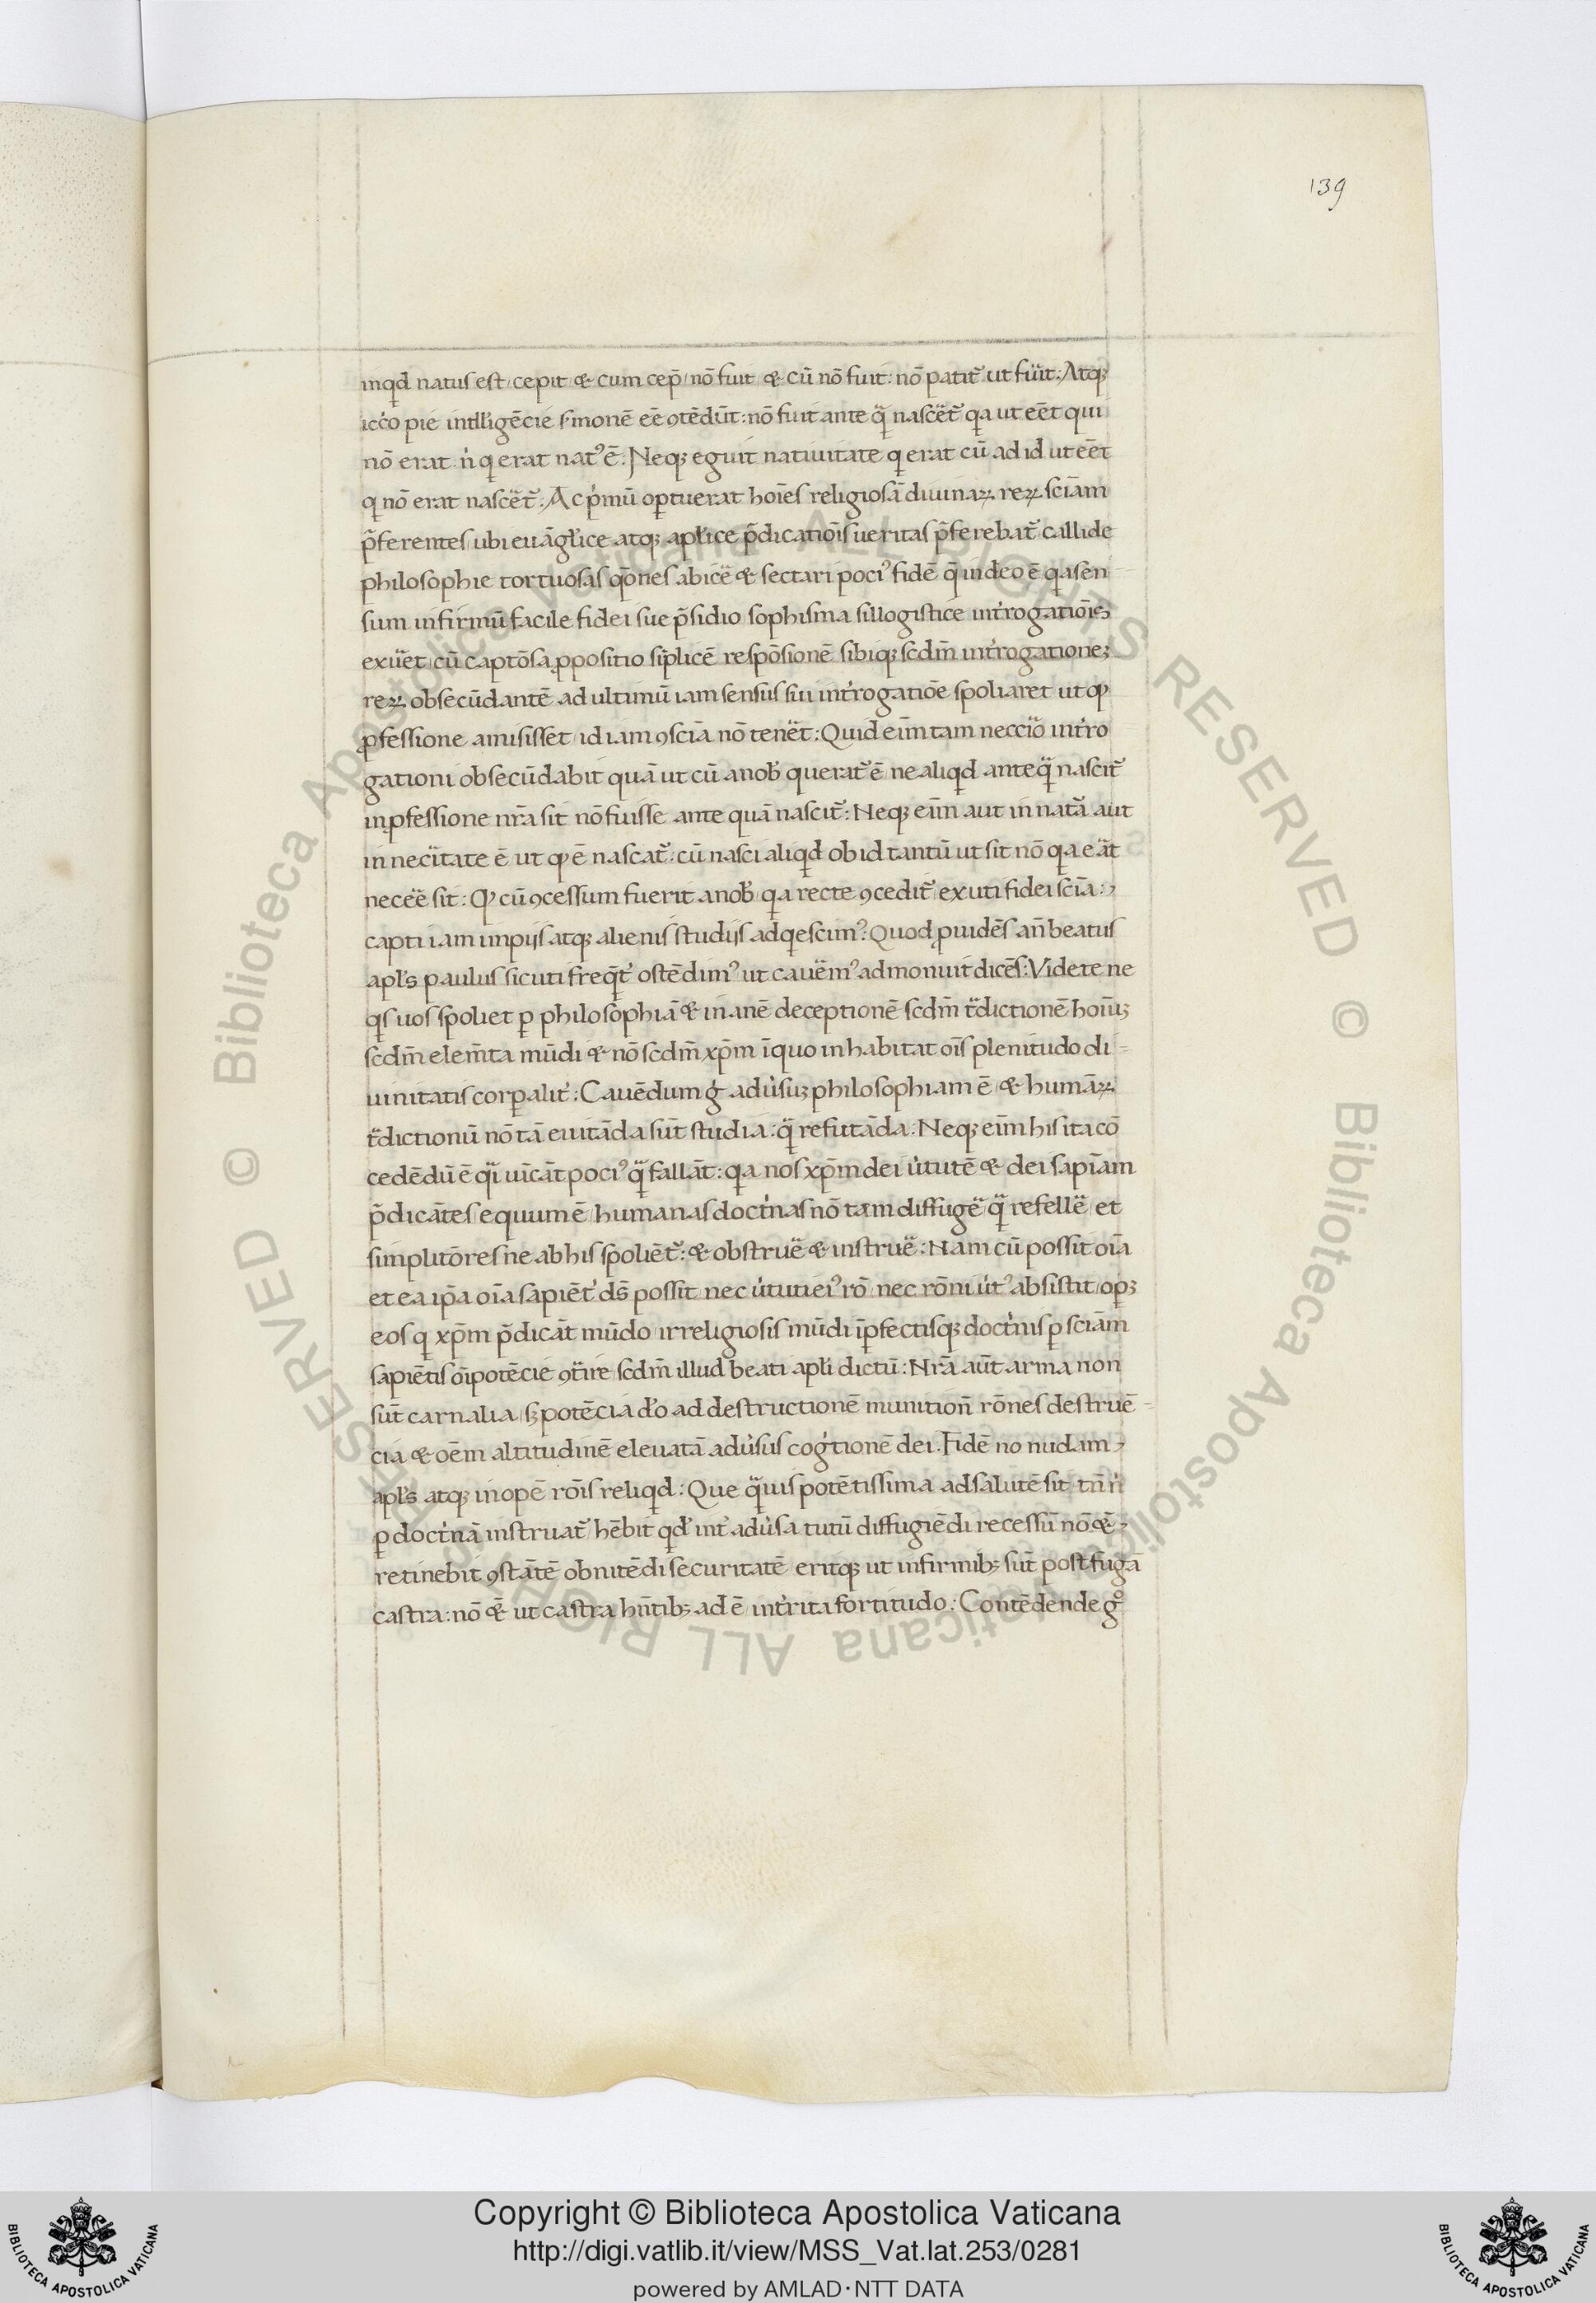 139
inqd natus est cepit & cum cep̄ nō fuit & cū nō fuit: nō patit᷒ ut fuit: Atq;
icc̊o pie intlligēcie smonē eē ꝯtēdūt: nō fuit ante q̄ nascet᷒ qa ut eēt qui
nō erat n̍ q erat nat᷒ ē: Neq; eguit natiuitate q erat cū ad id ut eēt
q nō erat nascet᷒: Ac p̍mū oꝑtuerat hoīes religiosā diuinaꝝ reꝝ sciam
p̄ferentes ubi euāgl̍ice atq; apl̍ice p̄dicatiōis ueritas p̄ferebat᷒ callide
philosophie tortuosas qōnes abice & sectari poci᷒ fidē q̄ in deo ē qa sen
sum infirmū facile fidei sue p̄sidio sophisma sillogistice int̍rogatiōis
exuet cū captōsa ꝓpositio siplicē respōsionē sibiq; scdm̄ int̍rogatione;
reꝝ obsecūdantē ad ultimū iam sensus sui int̍rogatiōe spoliaret ut qꝫ
ꝓfessione amisisset id iam ꝯsciā nō tenet: Quid eīm tam neccio int̍ro
gationi obsecūdabit quā ut cū a nob̍ querat᷒ ē ne aliqd anteq̄ nascit᷒
in ꝓfessione nr̄a sit nō fuisse ante quā nascit᷒: Neq; eīm aut in natā aut
in necitate ē ut qꝫ ē nascat᷒: cū nasci aliqd ob id tantū ut sit nō qa eat
neceē sit: Qꝫ cū ꝯcessum fuerit a nob̍ qa recte ꝯcedit᷒ exuti fidei sciā:
capti iam impijs atq; alienis studijs adqescim᷒: Quod ꝓuidēs an̄ beatus
apl̍s paulus sicuti freqt̍ ostēdim᷒ ut cauem᷒ admonuit dicēs: Videte ne
qs uos spoliet ꝑ philosophiā & inanē deceptionē scdm̄ tdictionē hoīu;
scdm̄ elem̄ta mūdi & nō scdm̄ xp̄m īquo inhabitat oīs plenitudo di
uinitatis corꝑalit̍: Cauēdum g̍ adu̍sus philosophiam ē & humāꝝ
tdictionū nō tā euitāda sūt studia: q̄ refutāda: Neq; eīm his ita cō
cedēdū ē qi uīcāt poci᷒ q̄ fallāt: qa nos xp̄m dei u̍tutē & dei sapīam
p̄dicātes equum ē humanas doct̍nas nō tam diffuge q̄ refelle et
simplitōres ne ab his spoliēt᷒: & obstrue & instrue: Nam cū possit oīa
et ea ip̄a oīa sapiēt̍ ds̄ possit nec u̍tuti ei᷒ rō nec rōni u̍t᷒ absistit oꝑ;
eos q xp̄m p̄dicāt mūdo irreligiosis mūdi īꝑfectisq; doct̍nis ꝑ sciām
sapiētis oīpotēcie ꝯtire scdm̄ illud beati apl̍i dictū: Nr̄a aūt arma non
sūt carnalia sꝫ potēcia d̍o ad destructionē munition̄ rōnes destruē
cia & oēm altitudinē eleuatā adu̍sus cog̍tionē dei. Fidē no nudam
apl̍s atq; inopē rōis reliqd: Que q̄uis potētissima ad salutē sit tn̄ n̍
ꝑ doct̍nā instruat᷒ hēbit qd̍ int̍ adu̍sa tutū diffugiēdi recessū nō &̄
retinebit ꝯstātē obnitēdi securitatē eritq; ut infirmib; sūt post fugā
castra: nō &̄ ut castra hn̄tib; ad ē int̍rita fortitudo: Contēdende g̊
Copyright © Biblioteca Apostolica Vaticana
http://digi.vatlib.it/view/MSS_Vat.lat.253/0281
powered by AMLAD·NTT DATA